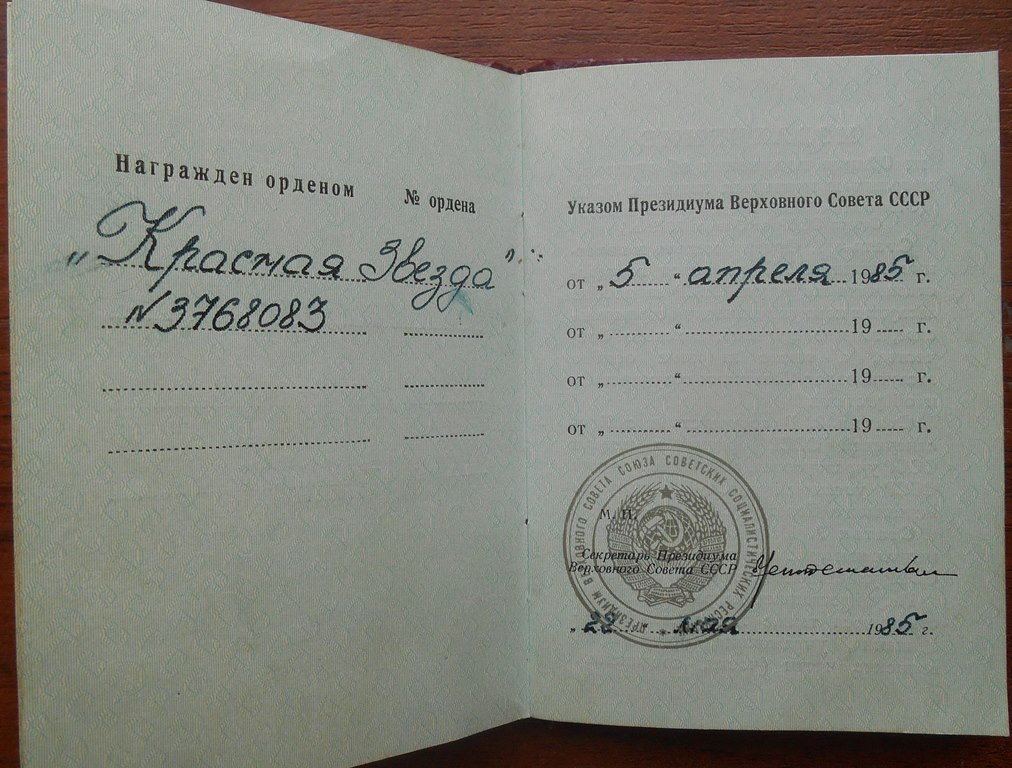 Награжден орденом № ордена
„Красная Звезда"
N3768083
Указом Президиума Верховного Совета СССР
от „5“ апреля 1985 г.
от „ “ 19 г.
от „ “ 19 г.
от „ “ 19 г.
ПРЕЗИДИУМ ВЕРХОВНОГО СОВЕТА СОЮЗА СОВЕТСКИХ СОЦИАЛИСТИЧЕСКИХ РЕСПУБЛИК
М. П.
Секретарь Президиума
Верховного Совета СССР
„22 мая 1985 г.